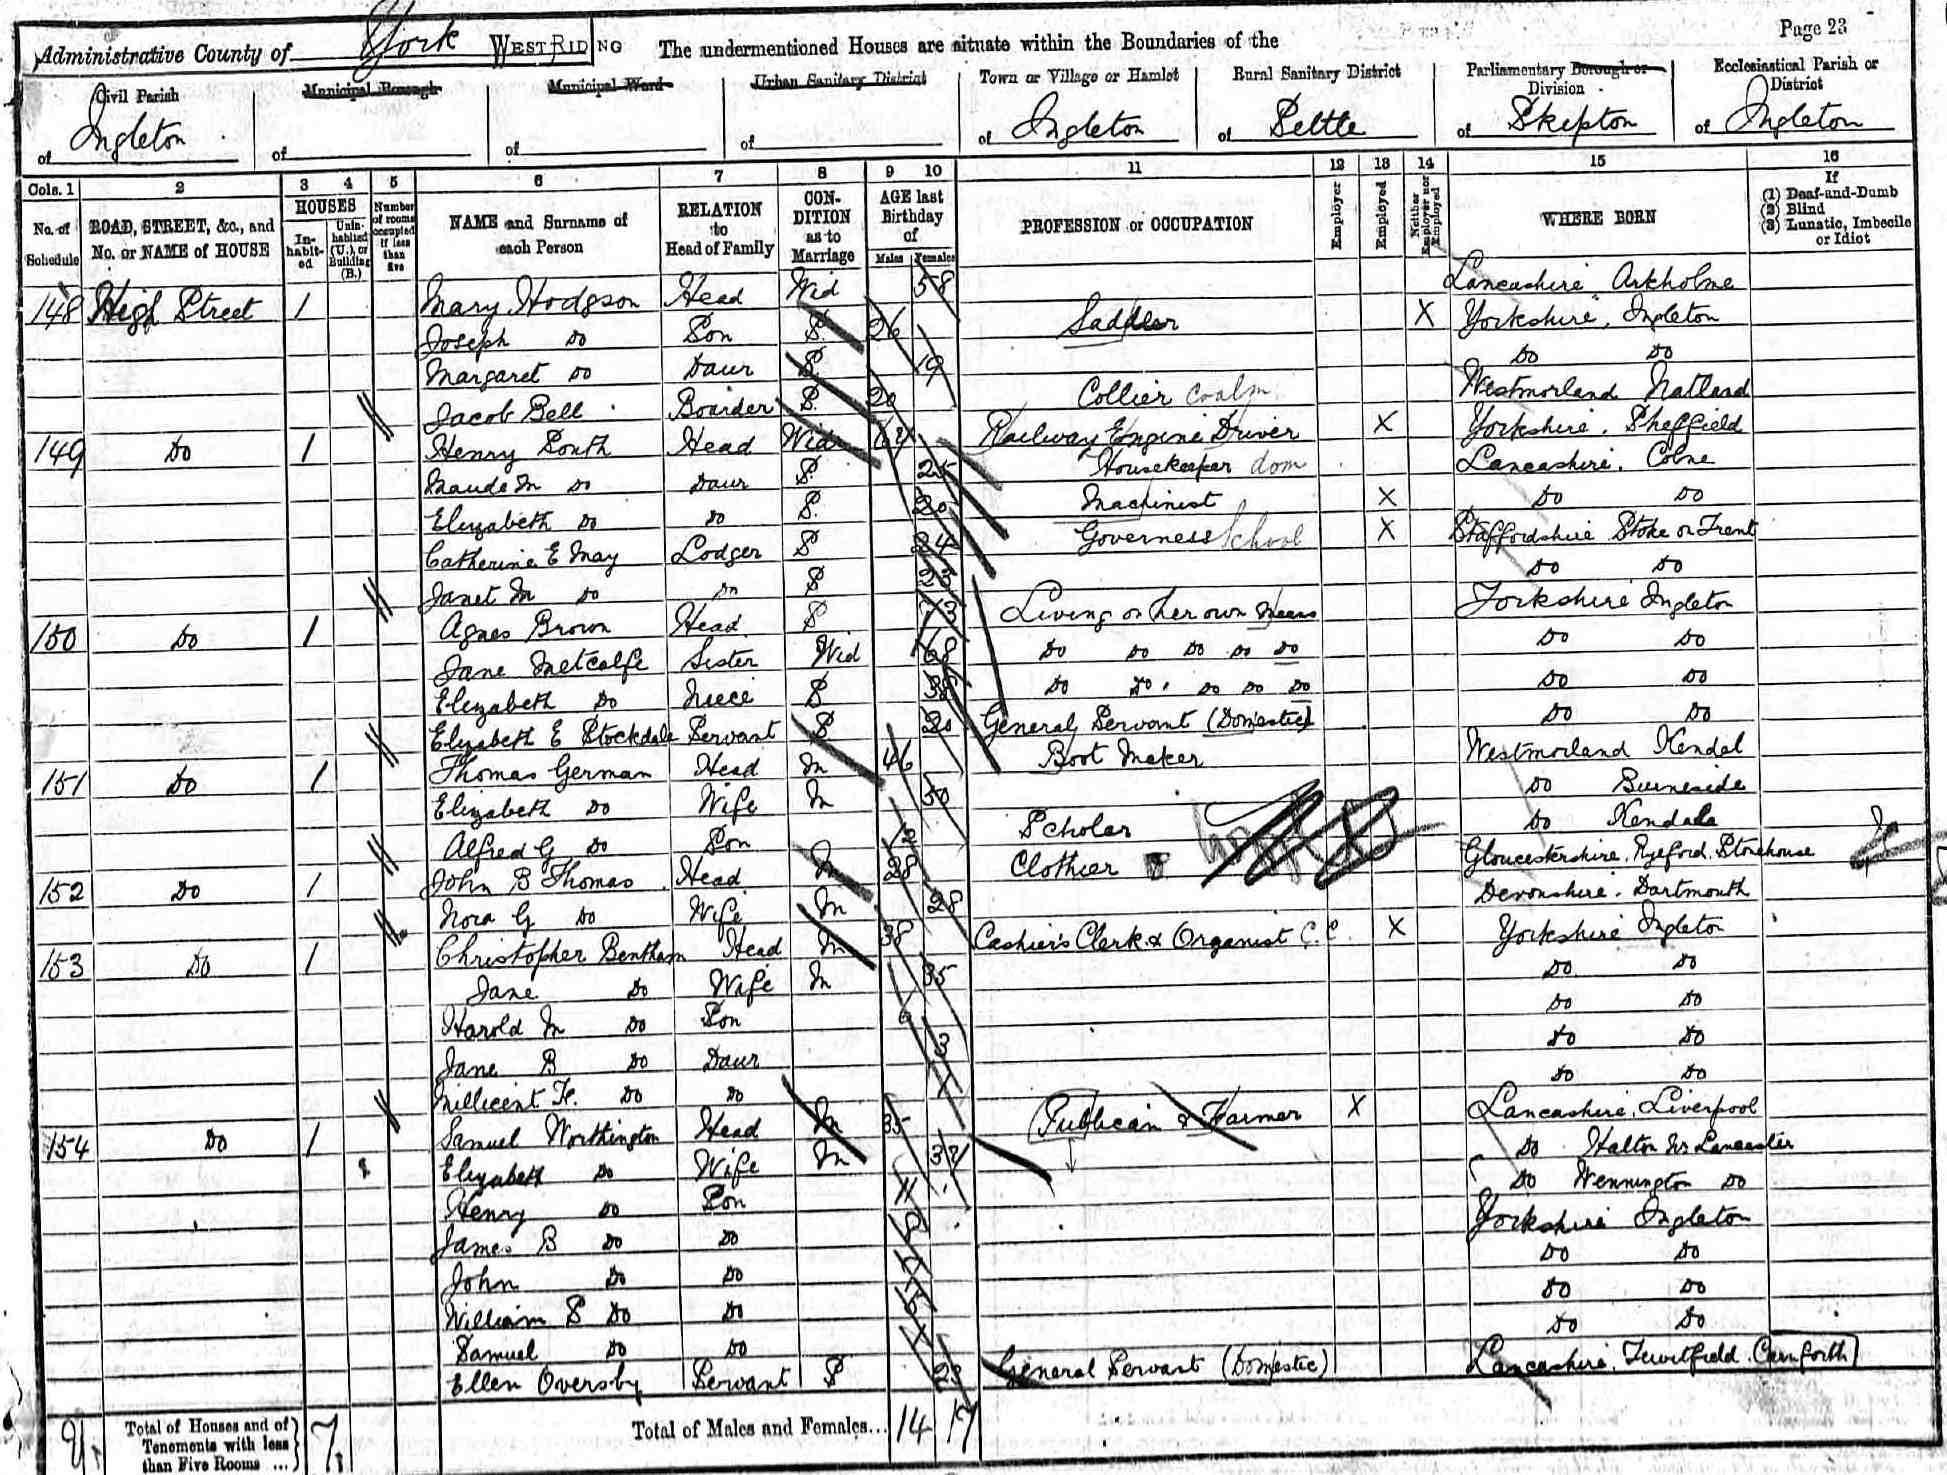 Page 23
Administrative County of York WEST RIDING The undermentioned Houses are situate within the Boundaries of the
Civil Parish of Ingleton
Municipal Borough of
Municipal Ward of
Urban Sanitary District of
Town or Village or Hamlet of Ingleton
Rural Sanitary District of Settle
Parliamentary Borough or Division of Skipton
Ecclesiastical Parish or District of Ingleton
Cols. 1 2 3 4 5 6 7 8 9 10 11 12 13 14 15 16
No. of Schedule
ROAD, STREET, &c., and No. or NAME of HOUSE
HOUSES
In-habit-ed
Unin-habited (U.), or Building (B.)
Number of rooms occupied if less than five
NAME and Surname of each Person
RELATION to Head of Family
CON-DITION as to Marriage
AGE last Birthday of
Males Females
PROFESSION or OCCUPATION
Employer
Employed
Neither Employer nor Employed
WHERE BORN
If (1) Deaf-and-Dumb (2) Blind (3) Lunatic, Imbecile or Idiot
148 High Street 1 Mary Hodgson Head Wid 58 Lancashire Arkholme
Joseph Do Son S. 26 Saddler X Yorkshire, Ingleton
Margaret Do Daur S 19 Do Do
Jacob Bell Boarder S. 20 Collier coalm Westmorland Natland
149 Do 1 Henry South Head Wid 64 Railway Engine Driver X Yorkshire, Sheffield
Maude M Do Daur S. 25 Housekeeper dom Lancashire, Colne
Elizabeth Do Do S. 20 Machinist X Do Do
Catherine E May Lodger S 24 Governess School X Staffordshire Stoke on Trent
Janet M Do Do S 23 Do Do
150 Do 1 Agnes Brown Head S 73 Living on her own Means Yorkshire Ingleton
Jane Metcalfe Sister Wid 68 Do Do Do Do Do Do Do
Elizabeth Do Niece S 38 Do Do Do Do Do Do Do
Elizabeth E Stockdale Servant S 20 General Servant (Domestic) Do Do
151 Do 1 Thomas German Head M 46 Boot Maker Westmorland Kendal
Elizabeth Do Wife M 50 Do Burneside
Alfred G Do Son 12 Scholar Do Kendal
152 Do 1 John B Thomas Head M 28 Clothier Gloucestershire, Ryeford, Stonehouse
Nora G Do Wife M 28 Devonshire, Dartmouth
153 Do 1 Christopher Bentham Head M 38 Cashier's Clerk & Organist C.C. X Yorkshire Ingleton
Jane Do Wife M 35 Do Do
Harold M Do Son 6 Do Do
Jane B Do Daur 3 Do Do
Millicent Do Do 1 Do Do
154 Do 1 Samuel Worthington Head M 35 Publican & Farmer X Lancashire, Liverpool
Elizabeth Do Wife M Do Halton Nr Lancaster
Henry Do Son 11 Do Wennington Do
James B Do Do 8 Yorkshire Ingleton
John Do Do Do Do
William S Do Do Do Do
Samuel Do Do Do Do
Ellen Oversby Servant S 23 General Servant (Domestic) Lancashire, Tewitfield Carnforth
Total of Houses and of Tenements with less than Five Rooms ... 7
Total of Males and Females... 14 17